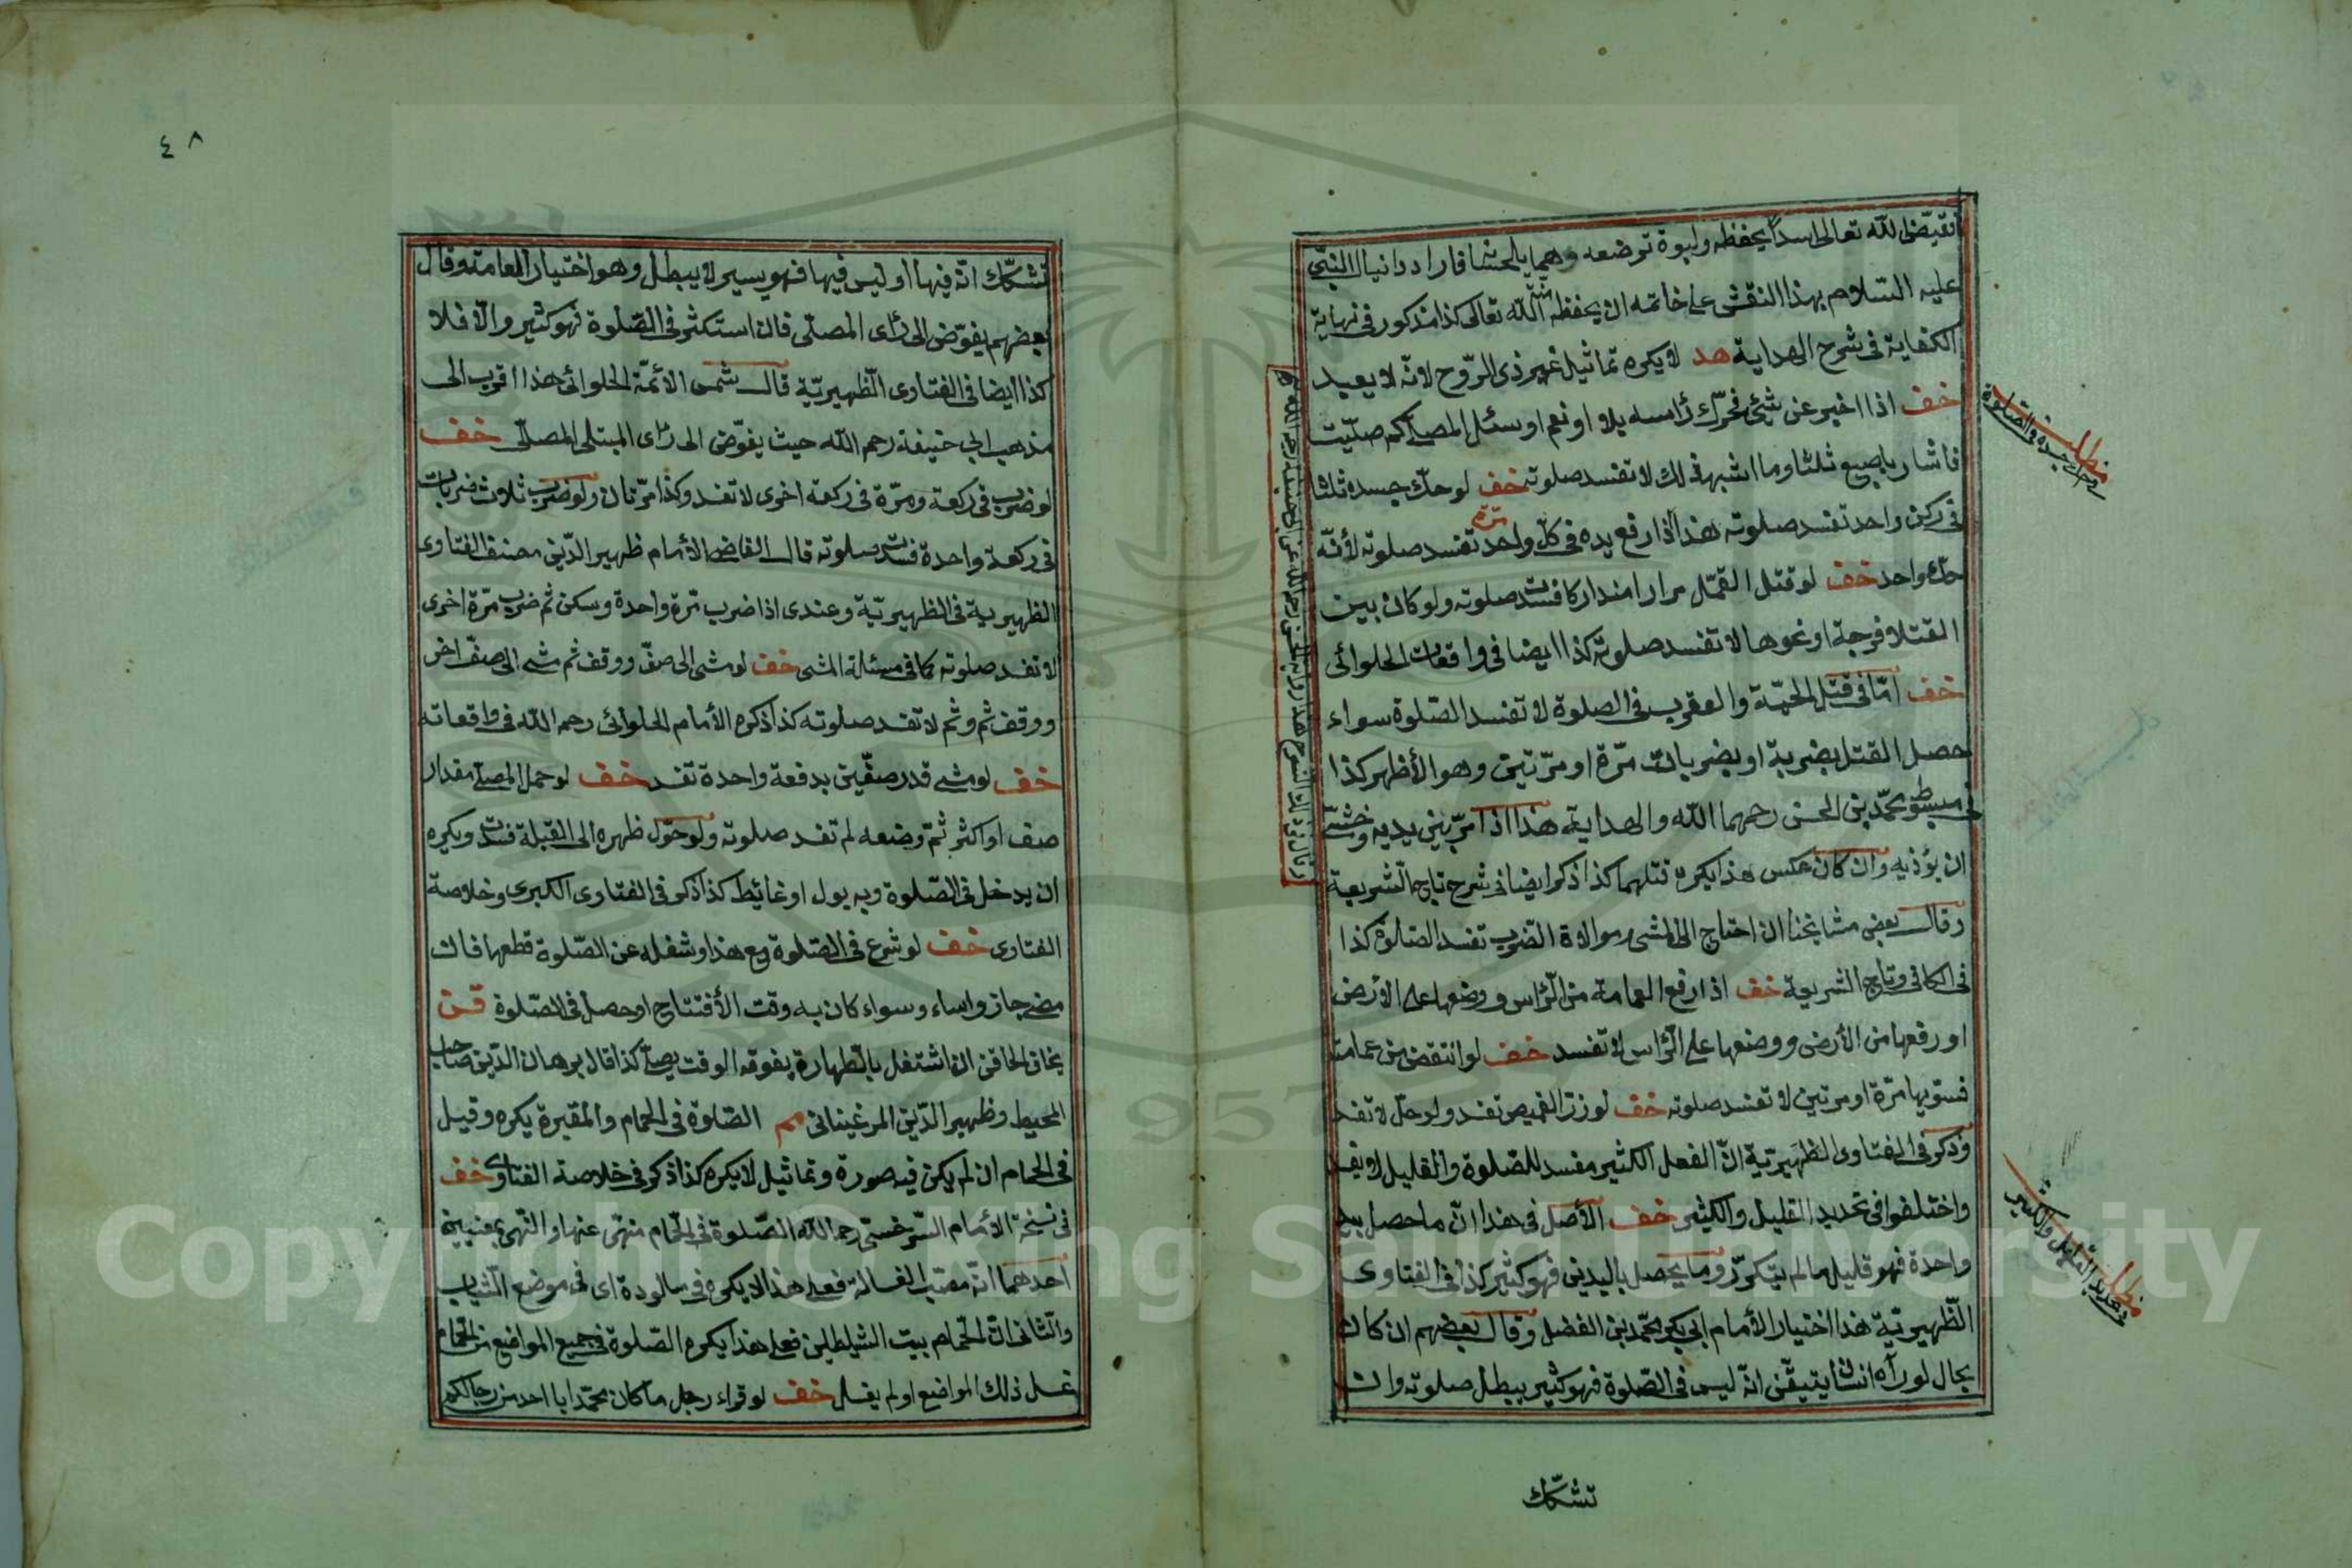 فقيّض الله تعالى اسدًا يحفظه ولبوة ترضعه وهما يلحسانه فاراد دانيال النبي
عليه السلام بهذا النقش على خاتمه ان يحفظ منّة الله تعالى كذا مذكور في نهاية
الكفاية في شرح الهداية هد لا يكره تماثيل غير ذى الرّوح لانه لا يعبد
خف اذا اخبر عن شئ فحرّك رأسه بلا او نعم او سئل المصلى كم صليت
فاشار باصبع ثلثا وما اشبه ذلك لا تفسد صلوته خف لو حكّ جسده ثلثا
في ركن واحد تفسد صلوته هذا اذا رفع يده في كلّ مرّة واحد تفسد صلوته لأنّه
حكّ واحد خف لو قتل القمّل مرارا متداركا فسدت صلوته ولو كان بين
القتلا فرجة او نحوها لا تفسد صلوته كذا ايضا في واقعات الحلوائى
خف امّا في قتل الحيّة والعقرب في الصلوة لا تفسد الصّلوة سواء
حصل القتل بضربة او بضربات مرّة او مرّتين وهو الأظهر كذا
في مبسوط محمّد بن الحسن رحمهما الله والهداية هذا اذا مرّ بين يديه وخشى
ان يؤذيه وان كان عكس هذا يكره قتلهما كذا ذكر ايضا في شرح تاج الشريعة
وقال بعض مشايخنا ان احتاج الى المشى وموالاة الضرب تفسد الصّلوة كذا
في الكافى وتاج الشريعة خف اذا رفع العمامة من الرّأس ووضعها على الأرض
او رفعها من الأرض ووضعها على الرّأس لا تفسد خف لو انتقض من عمامته
فسوّيها مرّة او مرتين لا تفسد صلوته خف لو زرّ القميص تفسد ولو حلّ لا تفسد
وذكر في الفتاوى الظّهيريّة انّ الفعل الكثير مفسد للصّلوة والقليل لا يفسد
واختلفوا في تحديد القليل والكثير خف الأصل في هذا انّ ما حصل بيد
واحدة فهو قليل ما لم يتكرّر وما يحصل باليدين فهو كثير كذا في الفتاوى
الظّهيريّة هذا اختيار الأمام ابى بكر محمّد بن الفضل وقال بعضهم ان كان
بحال لو رآه انسان يتيقّن انّه ليس في الصّلوة فهو كثير يبطل صلوته وان
تشكّك
مطلب
في الصلوة
مطلب
في تحديد القليل والكثير
٤٨
تشكّك انّه فيها او ليس فيها فهو يسير لا يبطل وهو اختيار العامة وقال
بعضهم يفوّض الى رأى المصلّى فان استكثر في الصّلوة فهو كثير والّا فلا
كذا ايضا في الفتاوى الظّهيريّة قال شمس الأئمّة الحلوائى هذا اقرب الى
مذهب ابى حنيفة رحمه الله حيث يفوّض الى رأى المبتلى المصلّى خف
لو ضرب في ركعة ومرّة في ركعة اخرى لا تفسد وكذا مرّتان ولو ضرب ثلاث ضربات
في ركعة واحدة فسدت صلوته قال القاضى الأمام ظهير الدّين مصنف الفتاوى
الظهيرية في الظهيريّة وعندى اذا ضرب مرّة واحدة وسكن ثم ضرب مرّة اخرى
لا تفسد صلوته كما في مسئلة المشى خف لو مشى الى صفّ ووقف ثم مشى الى صفّ اخر
ووقف ثم وثم لا تفسد صلوته كذا ذكره الأمام الحلوائى رحمه الله في واقعاته
خف لو مشى قدر صفّين بدفعة واحدة تفسد خف لو حمل المصلى مقدار
صف او اكثر ثمّ وضعه لم تفسد صلوته ولو حوّل ظهره الى القبلة فسدت ويكره
ان يدخل في الصّلوة وبه بول او غائط كذا ذكر في الفتاوى الكبرى وخلاصة
الفتاوى خف لو شرع في الصّلوة مع هذا وشغله عن الصّلوة قطعها فان
مضى جاز واساء وسواء كان به وقت الأفتتاح او حصل في الصّلوة قن
يخاف الحاقن ان اشتغل بالطّهارة يفوته الوقت يصلّى كذا قال برهان الدّين صاحب
المحيط وظهير الدّين المرغينانى مم الصّلوة في الحمام والمقبرة يكره وقيل
في الحمام ان لم يكن فيه صورة وتماثيل لا يكره كذا ذكر في خلاصة الفتاوى خف
في نسخة الأمام السّرخسىّ رحمه الله الصّلوة في الحمام منهىّ عنها والنّهى بمعنيين
احدهما انّه مصبّ الغسالة فعلى هذا لا يكره في سالودة اى في موضع الثّياب
والثّانى انّ الحمّام بيت الشّيطان فعلى هذا يكره الصّلوة في جميع المواضع من الحمّام
غسل ذلك المواضع او لم يغسل خف لو قراء رجل ما كان محمّد ابا احد من رجالكم
Copyright © King Saud University
957